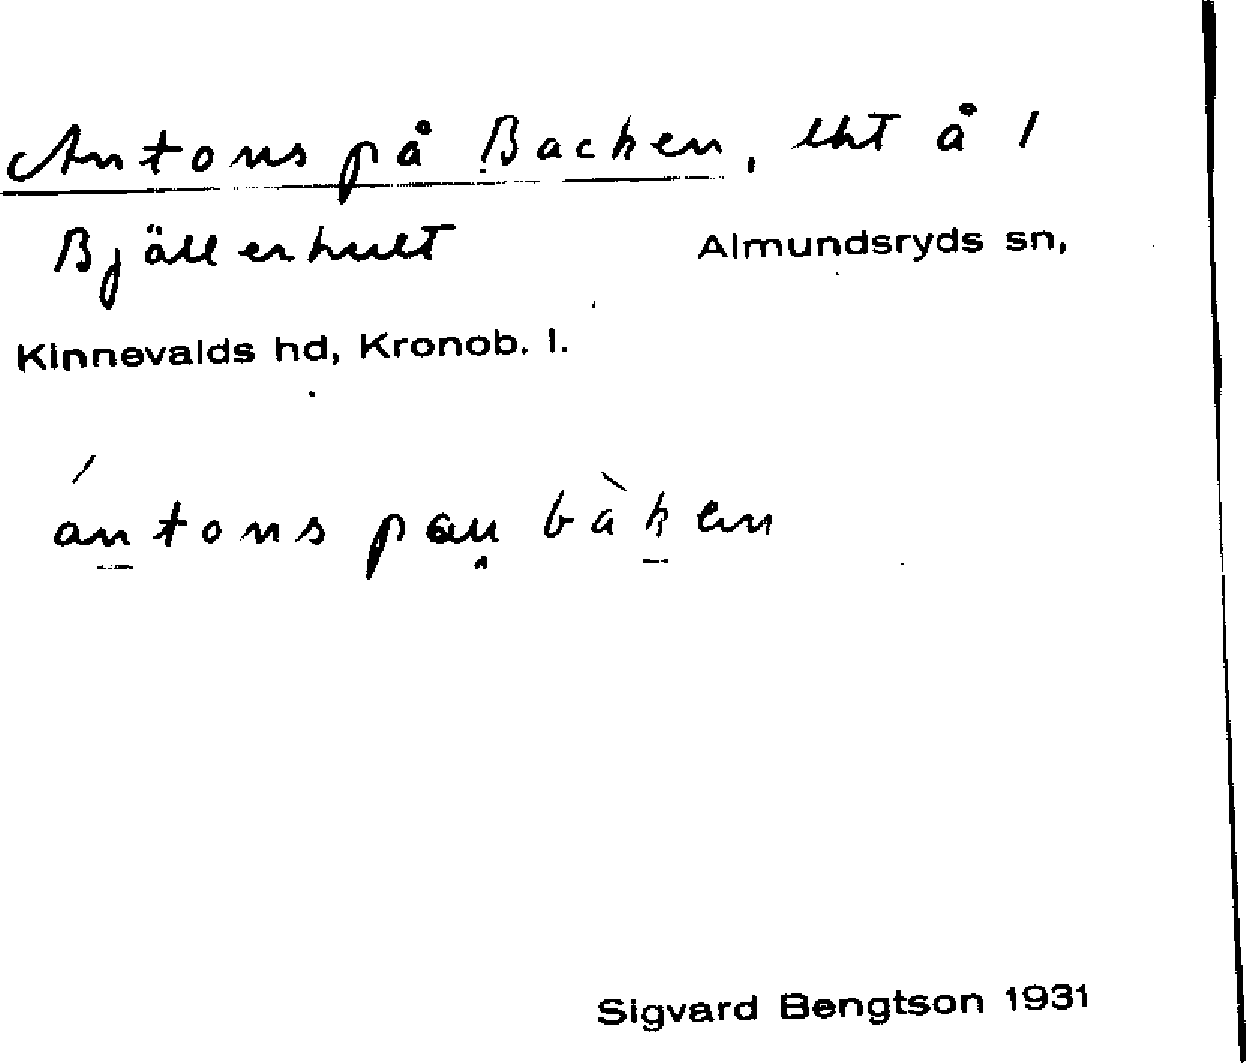 Antons på Backen, lht å 1
Bjällerhult Almundsryds sn,
Kinnevalds hd, Kronob. l.
ántons pau bàken
Sigvard Bengtson 1931